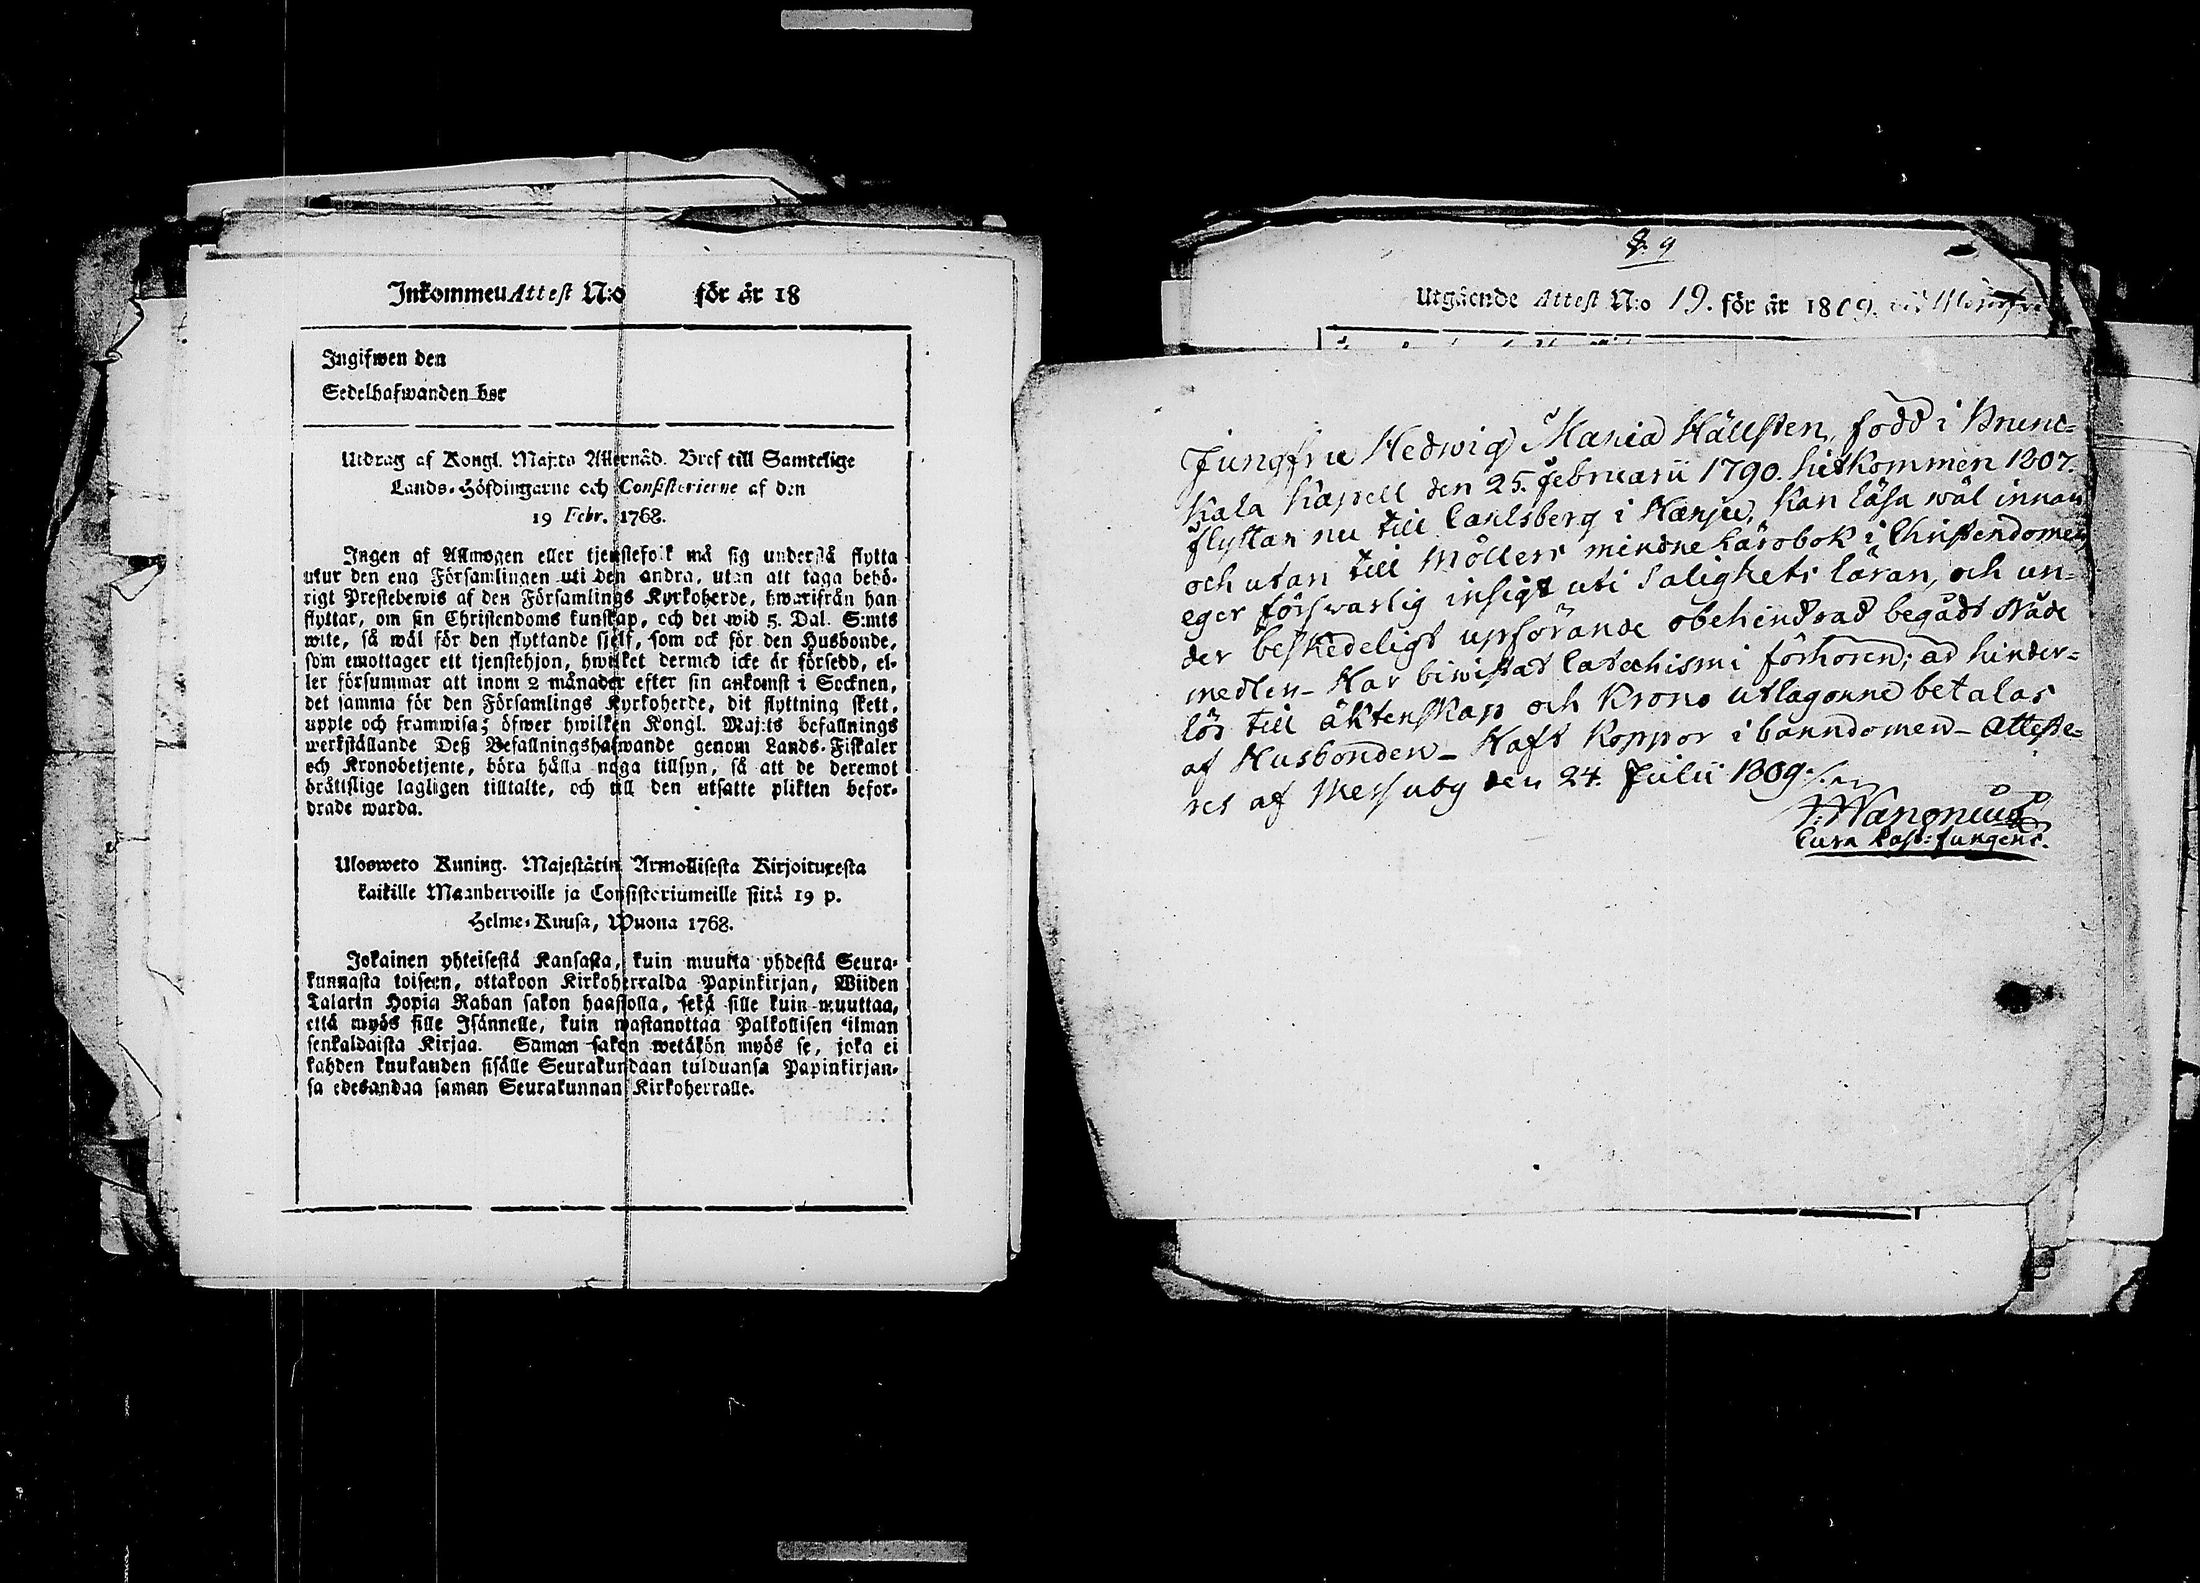 Inkommen Attest N:o för år 18
Ingifwen den
Sedelhafwanden bor
Utdrag af Kongl. Maj:ts Allernåd. Bref till Samtelige
Lands-Höfdingarne och Consistorierne af den
19 Febr. 1768.
Ingen af Allmogen eller tjenstefolk må sig understå flytta
utur den ena Församlingen uti den andra, utan att taga behö-
rigt Prestebewis af den Församlings Kyrkoherde, hwarifrån han
flyttar, om sin Christendoms kunskap, och det wid 5. Dal. S:mts
wite, så wäl för den flyttande sjelf, som ock för den Husbonde,
som emottager ett tjenstehjon, hwilket dermed icke är försedd, el-
ler försummar att inom 2 månader efter sin ankomst i Socknen,
det samma för den Församlings Kyrkoherde, dit flyttning skett,
uppte och framwisa; öfwer hwilken Kongl. Maj:ts befallnings
werkställande Deß Befallningshafwande genom Lands-Fiskaler
och Kronobetjente, böra hålla noga tillsyn, så att de deremot
brätislige lagligen tilltalte, och till den utsatte plikten befor-
drade warda.
Ulosweto Kuning. Majestätin Armollisesta Kirjoituxesta
kaikille Maanherroille ja Consistoriumeille siitä 19 p.
Helme-Kuusa, Wuona 1768.
Jokainen yhteisestä Kansasta, kuin muutta yhdestä Seura-
kunnasta toiseen, ottakoon Kirkoherralda Papinkirjan, Wiiden
Talarin Hopia Rahan sakon haastolla, sekä sille kuin muuttaa,
että myös sille Isännelle, kuin wastanottaa Palkollisen ilman
senkaldaista Kirjaa. Saman sakon wetäkön myös se, joka ei
kahden kuukauden sisälle Seurakundaan tulduansa Papinkirjan-
sa edesandaa saman Seurakunnan Kirkoherralle.
9
Utgående Attest N:o 19. för år 1809.
Jungfru Hedwig Maria Hällsten, född i Brunc-
kala Kapell den 25. Februarii 1790. hitkommen 1807.
flyttar nu till Carlsberg i Hanju, kan läsa wäl innan
och utan till Möllers mindre Lärobok i Christendomen,
eger förswarlig insigt uti Salighets läran, och un-
der beskedeligt upförande obehindrad begådt Nåde
medlen- Har biwistat Catechismi förhören; är hinder-
lös till äktenskap och Krono utlagorne betalas
af Husbonden- Haft Koppor i barndomen- Atteste-
res af Messuby den 24. Julii 1809.
Wanonius
Cura Past: fungens.